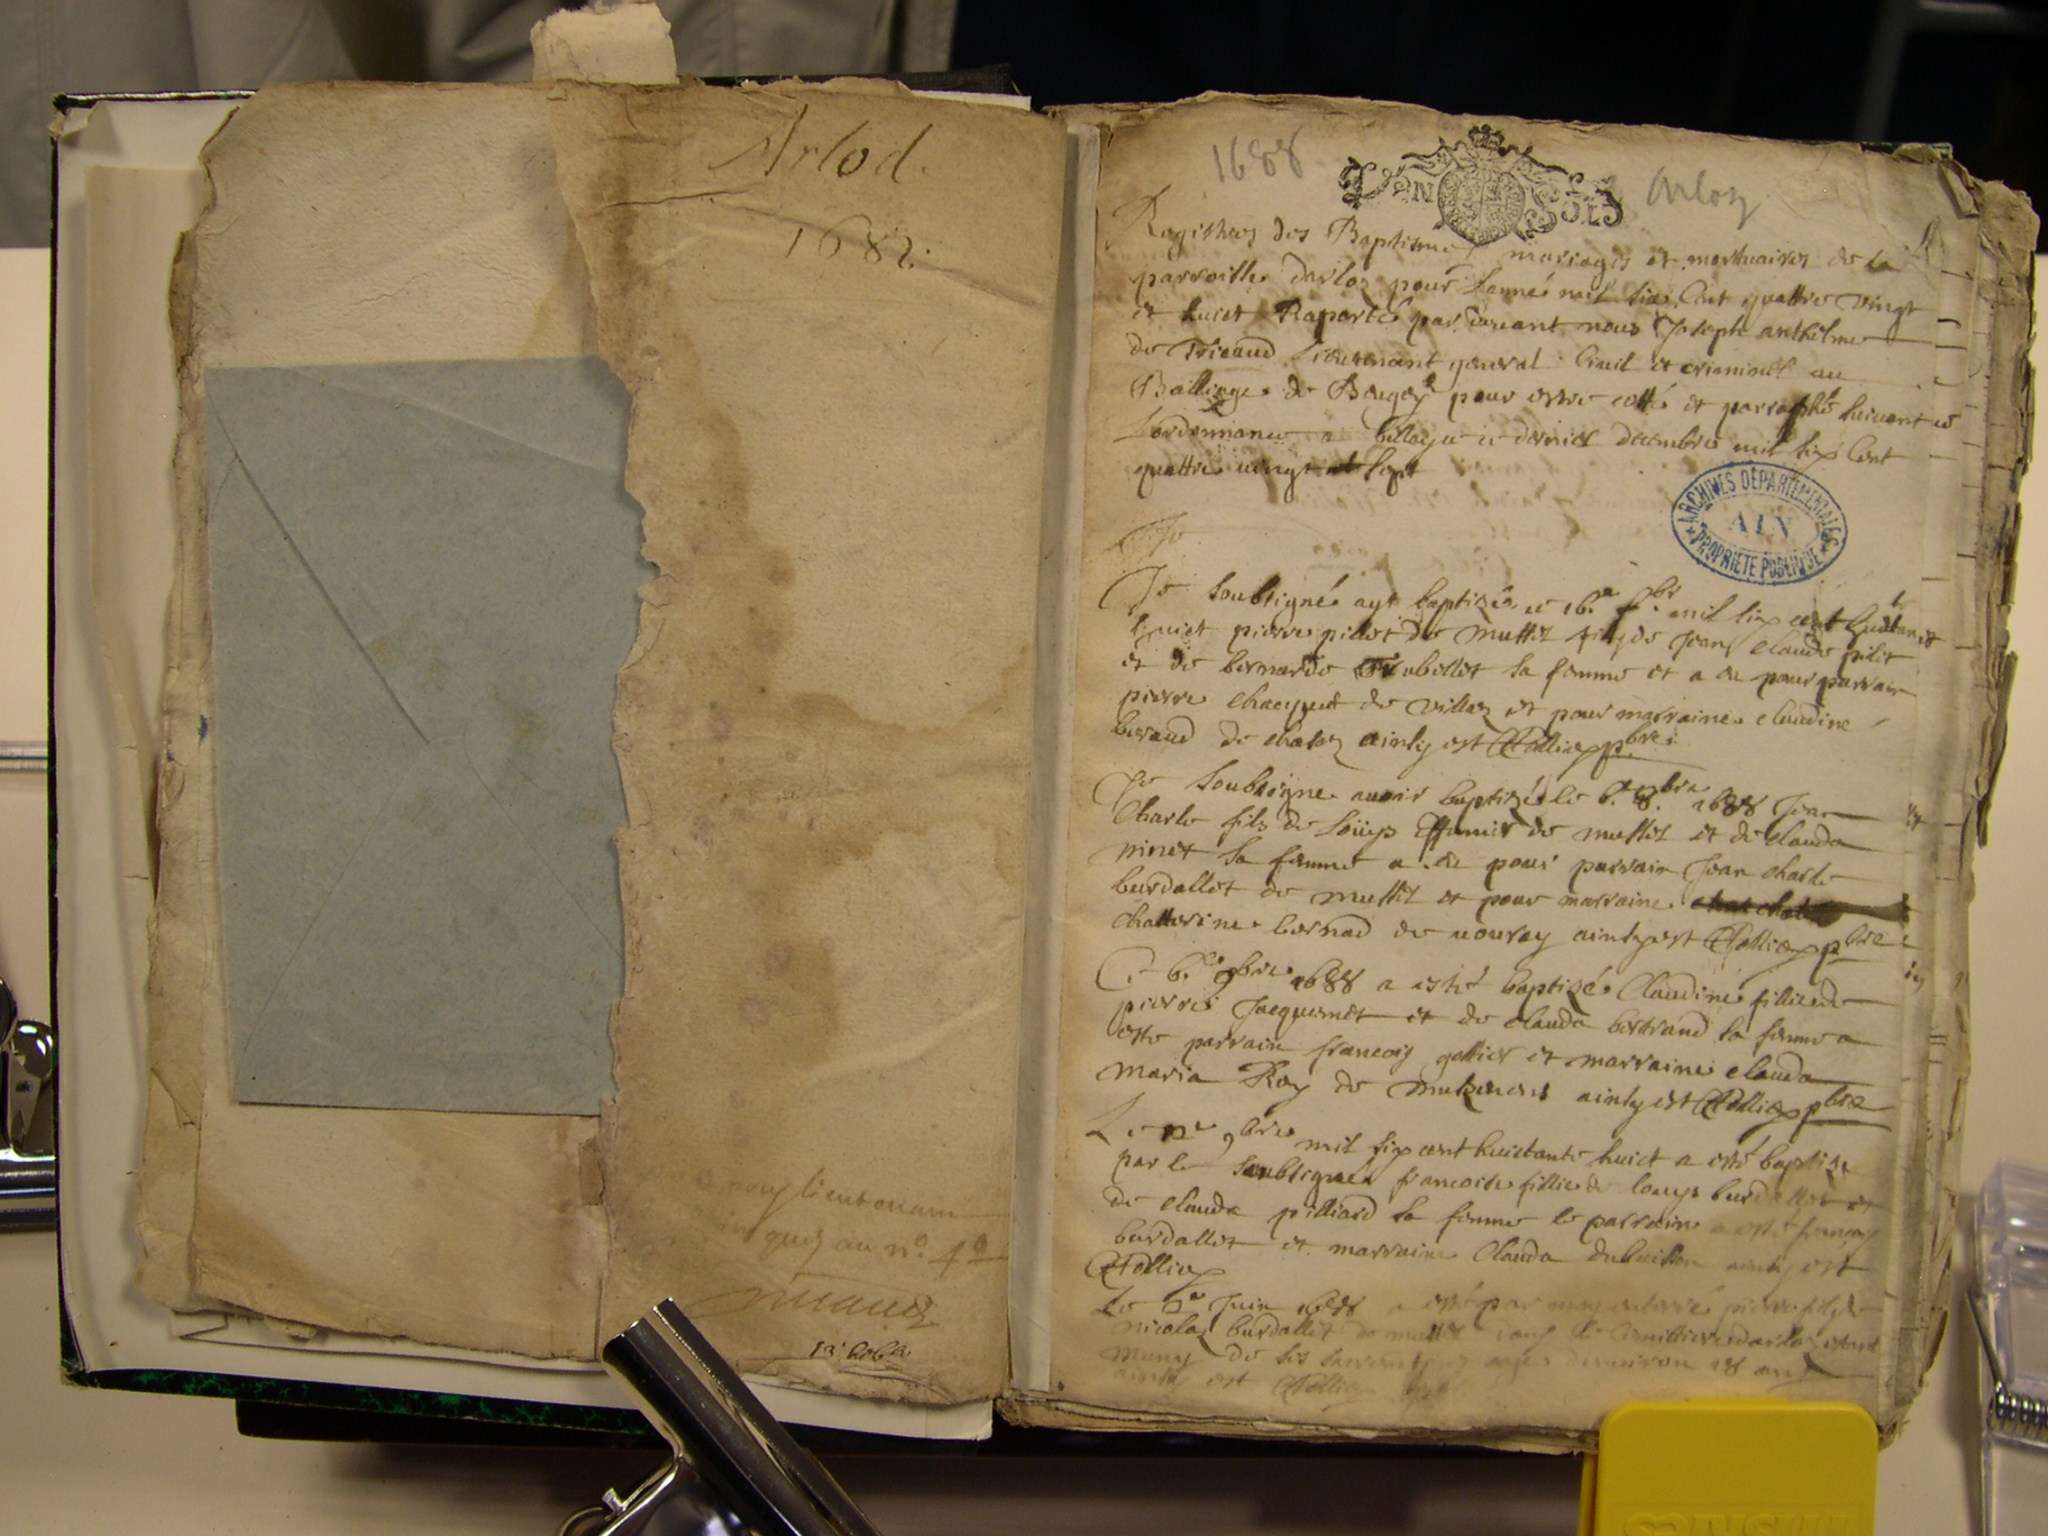 Arlod.
1682.
1688
Den Sols
Arloz
Registres des Baptisme mariages et mortuaires de la
parroisse darloz pour Lanneé mil six Cent quattre vingt
et huict Raportés par devant nous Joseph anthelme
de Tricaud Lieutenant general Civil et criminel au
Bailliage de Beugey pour estre cotté et parraphé suivant
Lordonnance a belley ce dernier decembre mil six Cent
quattre vingt et sept
ARCHIVES DÉPARTEMENTALES
AIN
PROPRIÉTÉ PUBLIQUE
Je
Je soubsigné ay baptizé ce 16.e 7.bre mil six cent huictante
huict pierre pilliet de mussel fils de Jean claude pilit
et de bernarde sa femme et a eu pour parrain
pierre de villaz et pour marraine claudine
beraud de ainsy est Collier pbre
Je soubsigne avoir baptizé le 6.e 8.bre 1688 Jean
Charle fils de Loüys de mussel et de clauda
ninet sa femme a eu pour parrain Jean charle
burdallet de mussel et pour marraine
chatterine bernad de vouvray ainsy est Collier pbre
Ce 6.e 9bre 1688 a esté baptizé Claudine fillie de
pierre Jacquemet et de clauda bertrand sa femme a
este parrain francois gallier et marraine clauda
maria Ray de ainsy est Collier pbre
Le 12e 9bre mil six cent huictante huict a esté baptize
par le soubsigné francoise fillie de louys burdallet et
de clauda pilliard sa femme le parrain a esté francoys
burdallet et marraine Clauda dubuisson ainsy est
Collier
Le Juin 1688 a esté par moy enterré pierre fils de
nicolas burdallet de mussel dans le cimittiere darloz estant
muny de ses sacrements agé environ 18 ans
ainsy est Collier